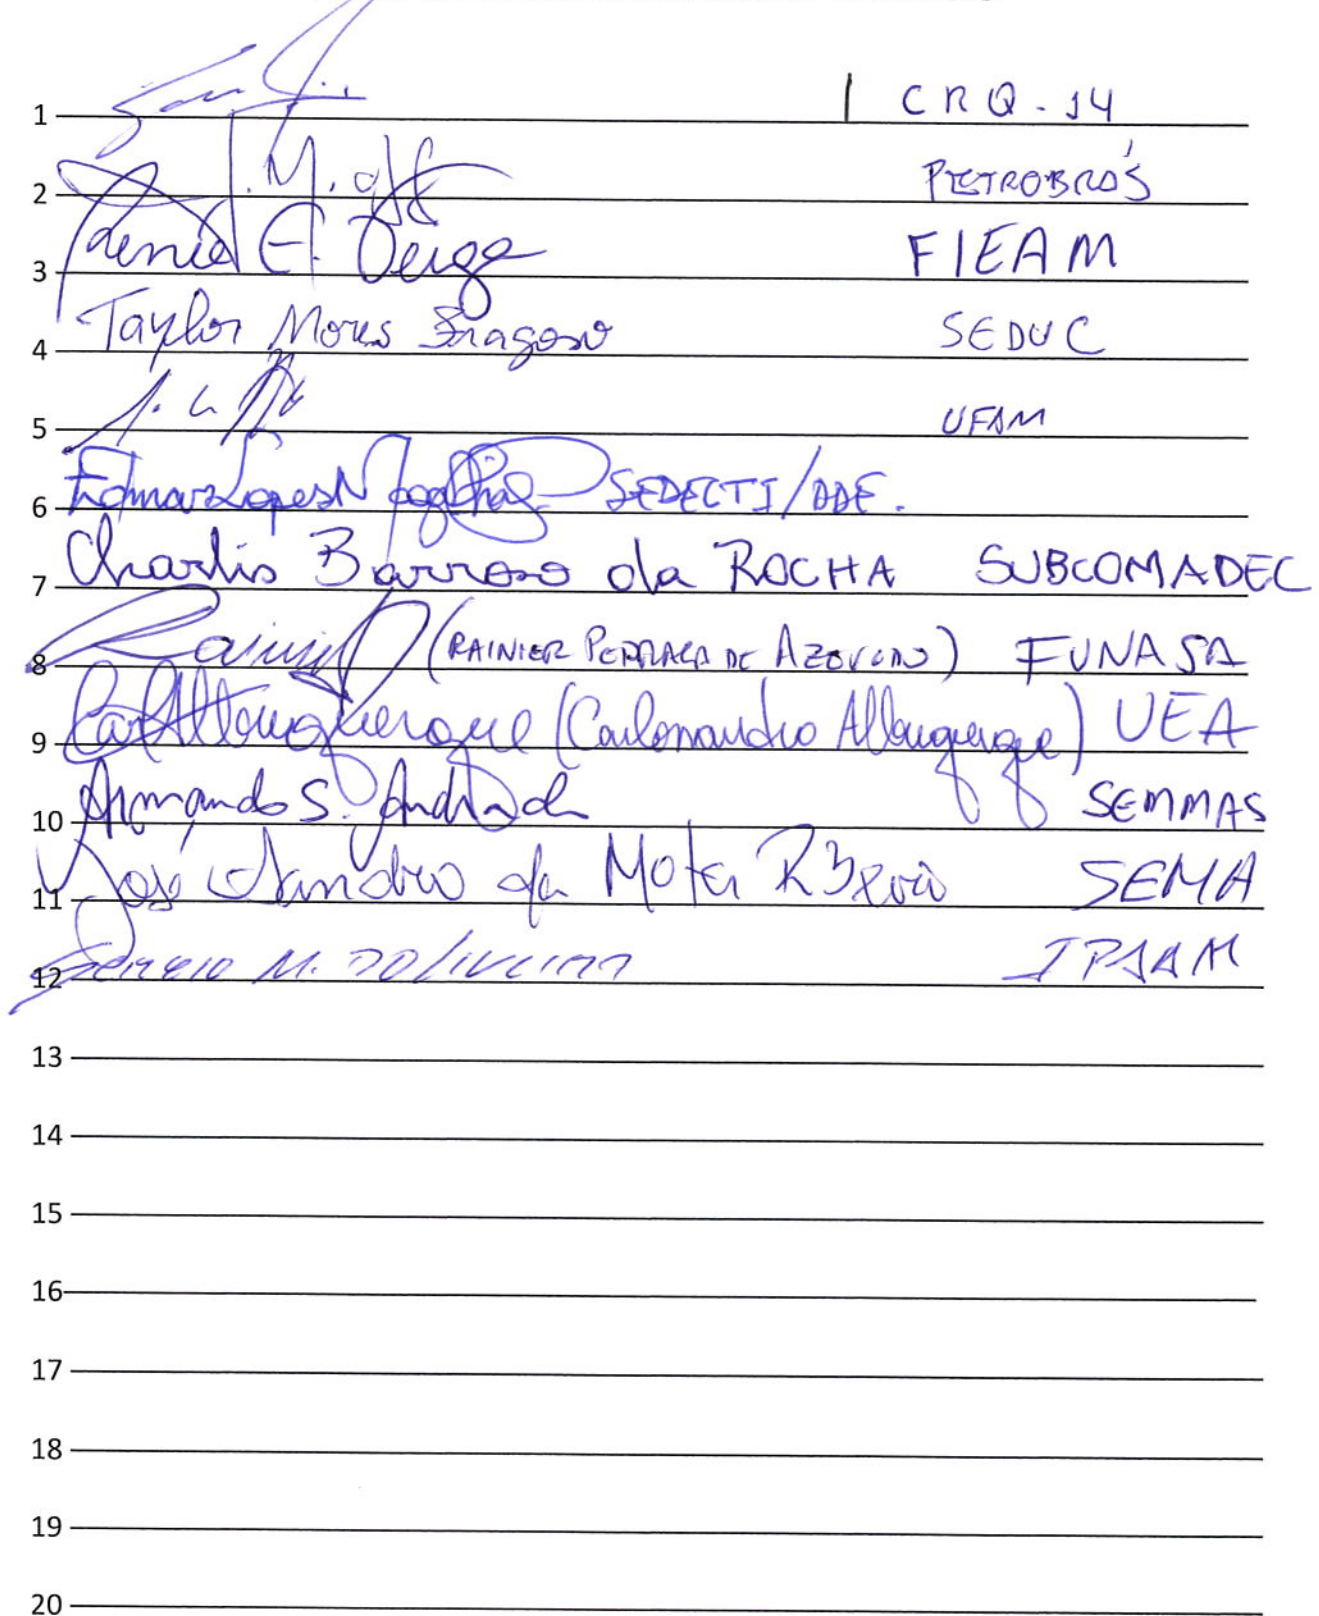 1 CRQ-14
2 PETROBRÁS
3 Daniel E. Veiga FIEAM
4 Taylor Fragoso SEDUC
5 UFAM
6 Edmar Lopes Magalhães SEDECTI/DDE.
7 Charlis Barroso da ROCHA SUBCOMADEC
8 (RAINIER PEDRAÇA DE AZEVEDO) FUNASA
9 Albuquerque (Carlossandro Albuquerque) UEA
10 Armando S. Andrade SEMMAS
11 José Sandro da Mota SEMA
12 M. D'Oliveira IPAAM
13
14
15
16
17
18
19
20